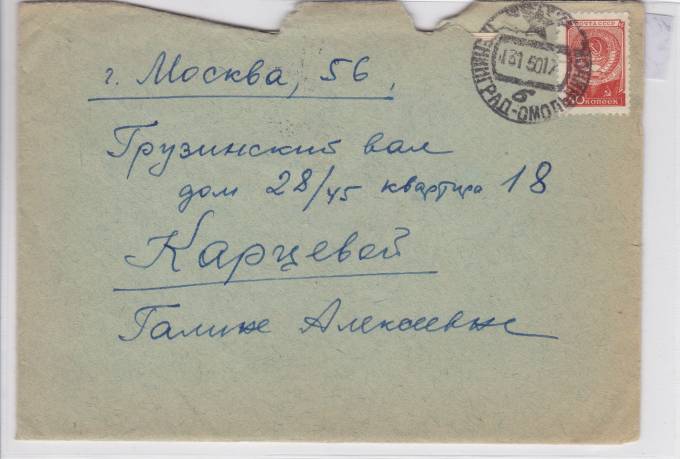 г. Москва, 56,
Грузинский вал
дом 28/45 квартира 18
Карцевой
Галине Алексеевне
ЛЕНИНГРАД-СМОЛЬНИНСКИЙ
6
ПОЧТА СССР
КОПЕЕК